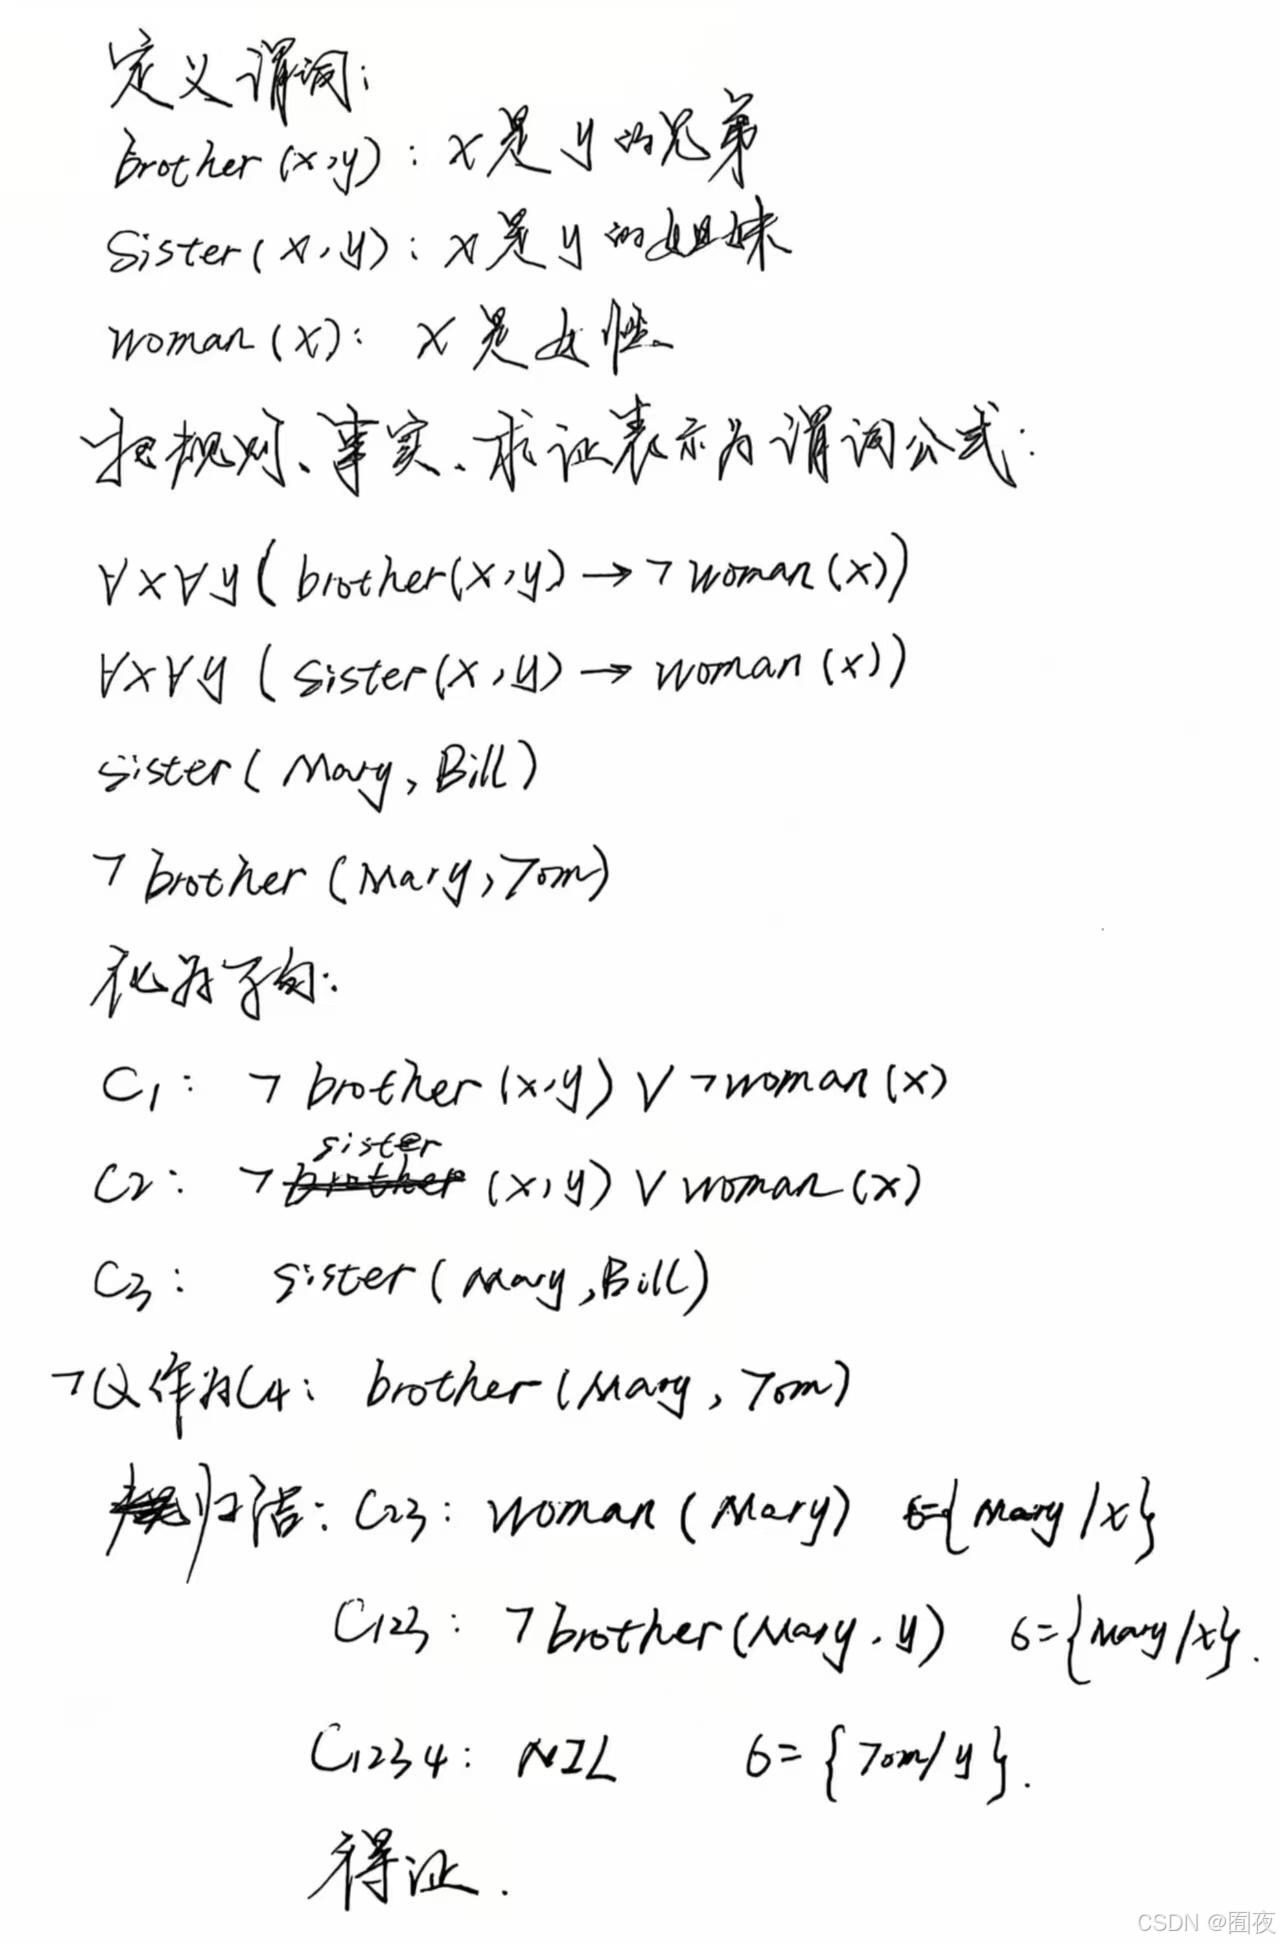 定义谓词:
brother(x,y): x是y的兄弟
Sister(x,y): x是y的姐妹
woman(x): x是女性
把规则、事实、求证表示为谓词公式:
∀x∀y(brother(x,y)→¬woman(x))
∀x∀y(sister(x,y)→woman(x))
sister(Mary,Bill)
¬brother(Mary,Tom)
化为子句:
C1: ¬brother(x,y)∨¬woman(x)
sister
C2: ¬brother(x,y)∨woman(x)
C3: sister(Mary,Bill)
¬Q作为C4: brother(Mary,Tom)
归结: C23: woman(Mary) б={Mary/x}
C123: ¬brother(Mary,y) б={Mary/x}.
C1234: NIL б={Tom/y}.
得证.
CSDN @囿夜